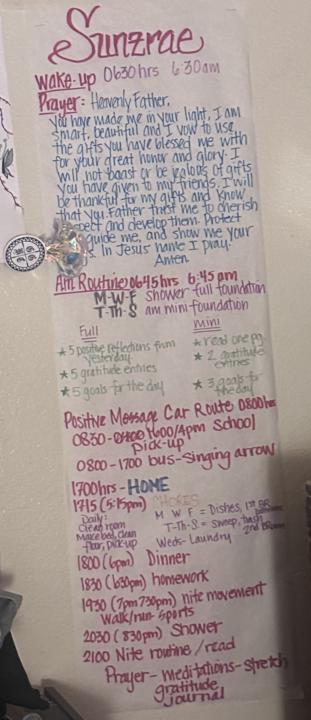 Sunzrae
Wake-up 0630hrs 6:30am
Prayer: Heavenly Father,
You have made me in your light, I am
smart, beautiful and I vow to use
the gifts you have blessed me with
for your great honor and glory. I
will not boast or be jealous of gifts
you have given to my friends. I will
be thankful for my gifts and know
that you Father trust me to cherish
and develop them. Protect
guide me, and show me your
In Jesus name I pray.
Amen
Am Routine 0645hrs 6:45am
M-W-F shower full foundation
T-Th-S am mini foundation
Full
★ 5 positive reflections from
yesterday
★ 5 gratitude entries
★ 5 goals for the day
mini
★ read one pg.
★ 2 gratitude
entries
★ 3 goals for
the day
Positive Message Car Route 0800hrs
0830- 1600/4pm School
pick-up
0800-1700 bus-singing arrow
1700hrs - HOME
1715 (5:15pm) CHORES
Daily:
Clean room
Make bed, clean
floor, pick-up
M W F = Dishes, 1st BR
T-Th-S = Sweep, trash
2nd BRoom
Weds- Laundry
1800 (6pm) Dinner
1830 (630pm) homework
1930 (7pm 730pm) nite movement
Walk/run sports
2030 (830pm) Shower
2100 Nite routine / read
Prayer - meditations - stretch
gratitude
journal